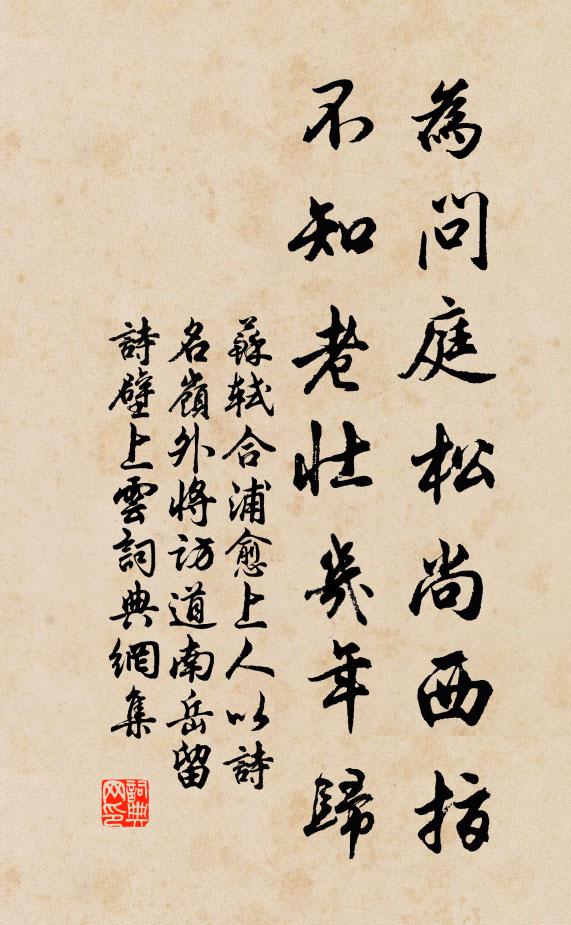 為問庭松尚西指
不知老壯幾年歸
蘇軾合浦愈上人以詩
名嶺外將訪道南岳留
詩壁上雲詞典網集
詞典
网印